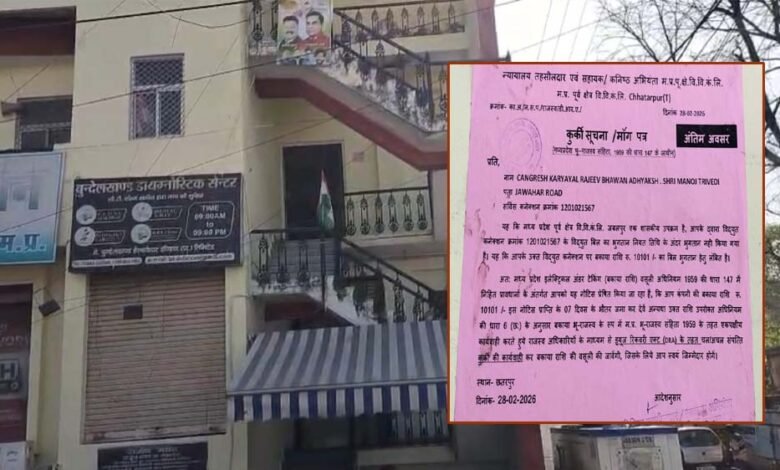 बुन्देलखण्ड डायग्नोस्टिक सेन्टर
TIME
09:00AM
to
09:00 PM
म.प्र.
न्यायालय तहसीलदार एवं सहायक/ कनिष्ठ अभियंता म.प्र.पू.क्षे.वि.वि.कं.लि.
म.प्र. पूर्व क्षेत्र वि.वि.कं.लि. Chhatarpur(T)
दिनांक 28-02-2026
कुर्की सूचना /माँग पत्र
अंतिम अवसर
(मध्यप्रदेश भू-राजस्व संहिता, 1959 की धारा 147 के अधीन)
प्रति,
नाम CANGRESH KARYAYAL RAJEEV BHAWAN ADHYAKSH . SHRI MANOJ TRIVEDI
पता JAWAHAR ROAD
सर्विस कनेक्शन क्रमांक 1201021567
यह कि मध्य प्रदेश पूर्व क्षेत्र वि.वि.कं.लि. जबलपुर एक शासकीय उपक्रम है, आपके द्वारा विद्युत
कनेक्शन क्रमांक 1201021567 के विद्युत बिल का भुगतान नियत तिथि के अंडर भुगतान नहीं किया गया
है। यह कि आपके उक्त विद्युत कनेक्शन पर बकाया राशि रु. 10101 /- का बिल भुगतान हेतु लंबित है।
अतः मध्य प्रदेश इलेक्ट्रिकल अंडर टेकिंग (बकाया राशि) वसूली अधिनियम 1959 की धारा 147 में
निहित प्रावधानों के अंतर्गत आपको यह नोटिस प्रेषित किया जा रहा है, कि आप कंपनी की बकाया राशि रु.
10101 /- इस नोटिस प्राप्ति के 07 दिवस के भीतर जमा कर देवें अन्यथा उक्त राशि उपरोक्त अधिनियम
की धारा 6 के अनुसार बकाया भू-राजस्व के रूप में म.प्र. भू-राजस्व संहिता 1959 के तहत एकपक्षीय
कार्यवाही करते हुये राजस्व अधिकारियों के माध्यम से ड्यूज रिकवरी एक्ट (DRA) के तहत चल/अचल संपत्ति
कुर्की की कार्यवाही कर बकाया राशि की वसूली की जावेगी, जिसके लिये आप स्वयं जिम्मेदार होंगे।
स्थान- छतरपुर
दिनांक- 28-02-2026
आदेशानुसार